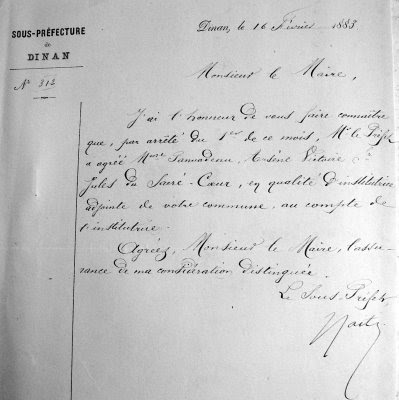 SOUS-PRÉFECTURE
de
DINAN
N° 313
Dinan, le 16 Février 1883.
Monsieur le Maire,
J'ai l'honneur de vous faire connaître
que, par arrêté du 1er de ce mois, Mr le Préfet
a agréé Arsène Victoire
Jules du Sacré-Cœur, en qualité d'institutrice
adjointe de votre commune, au compte de
l'institutrice.
Agréez, Monsieur le Maire, l'assu-
rance de ma considération distinguée.
Le Sous-Préfet,